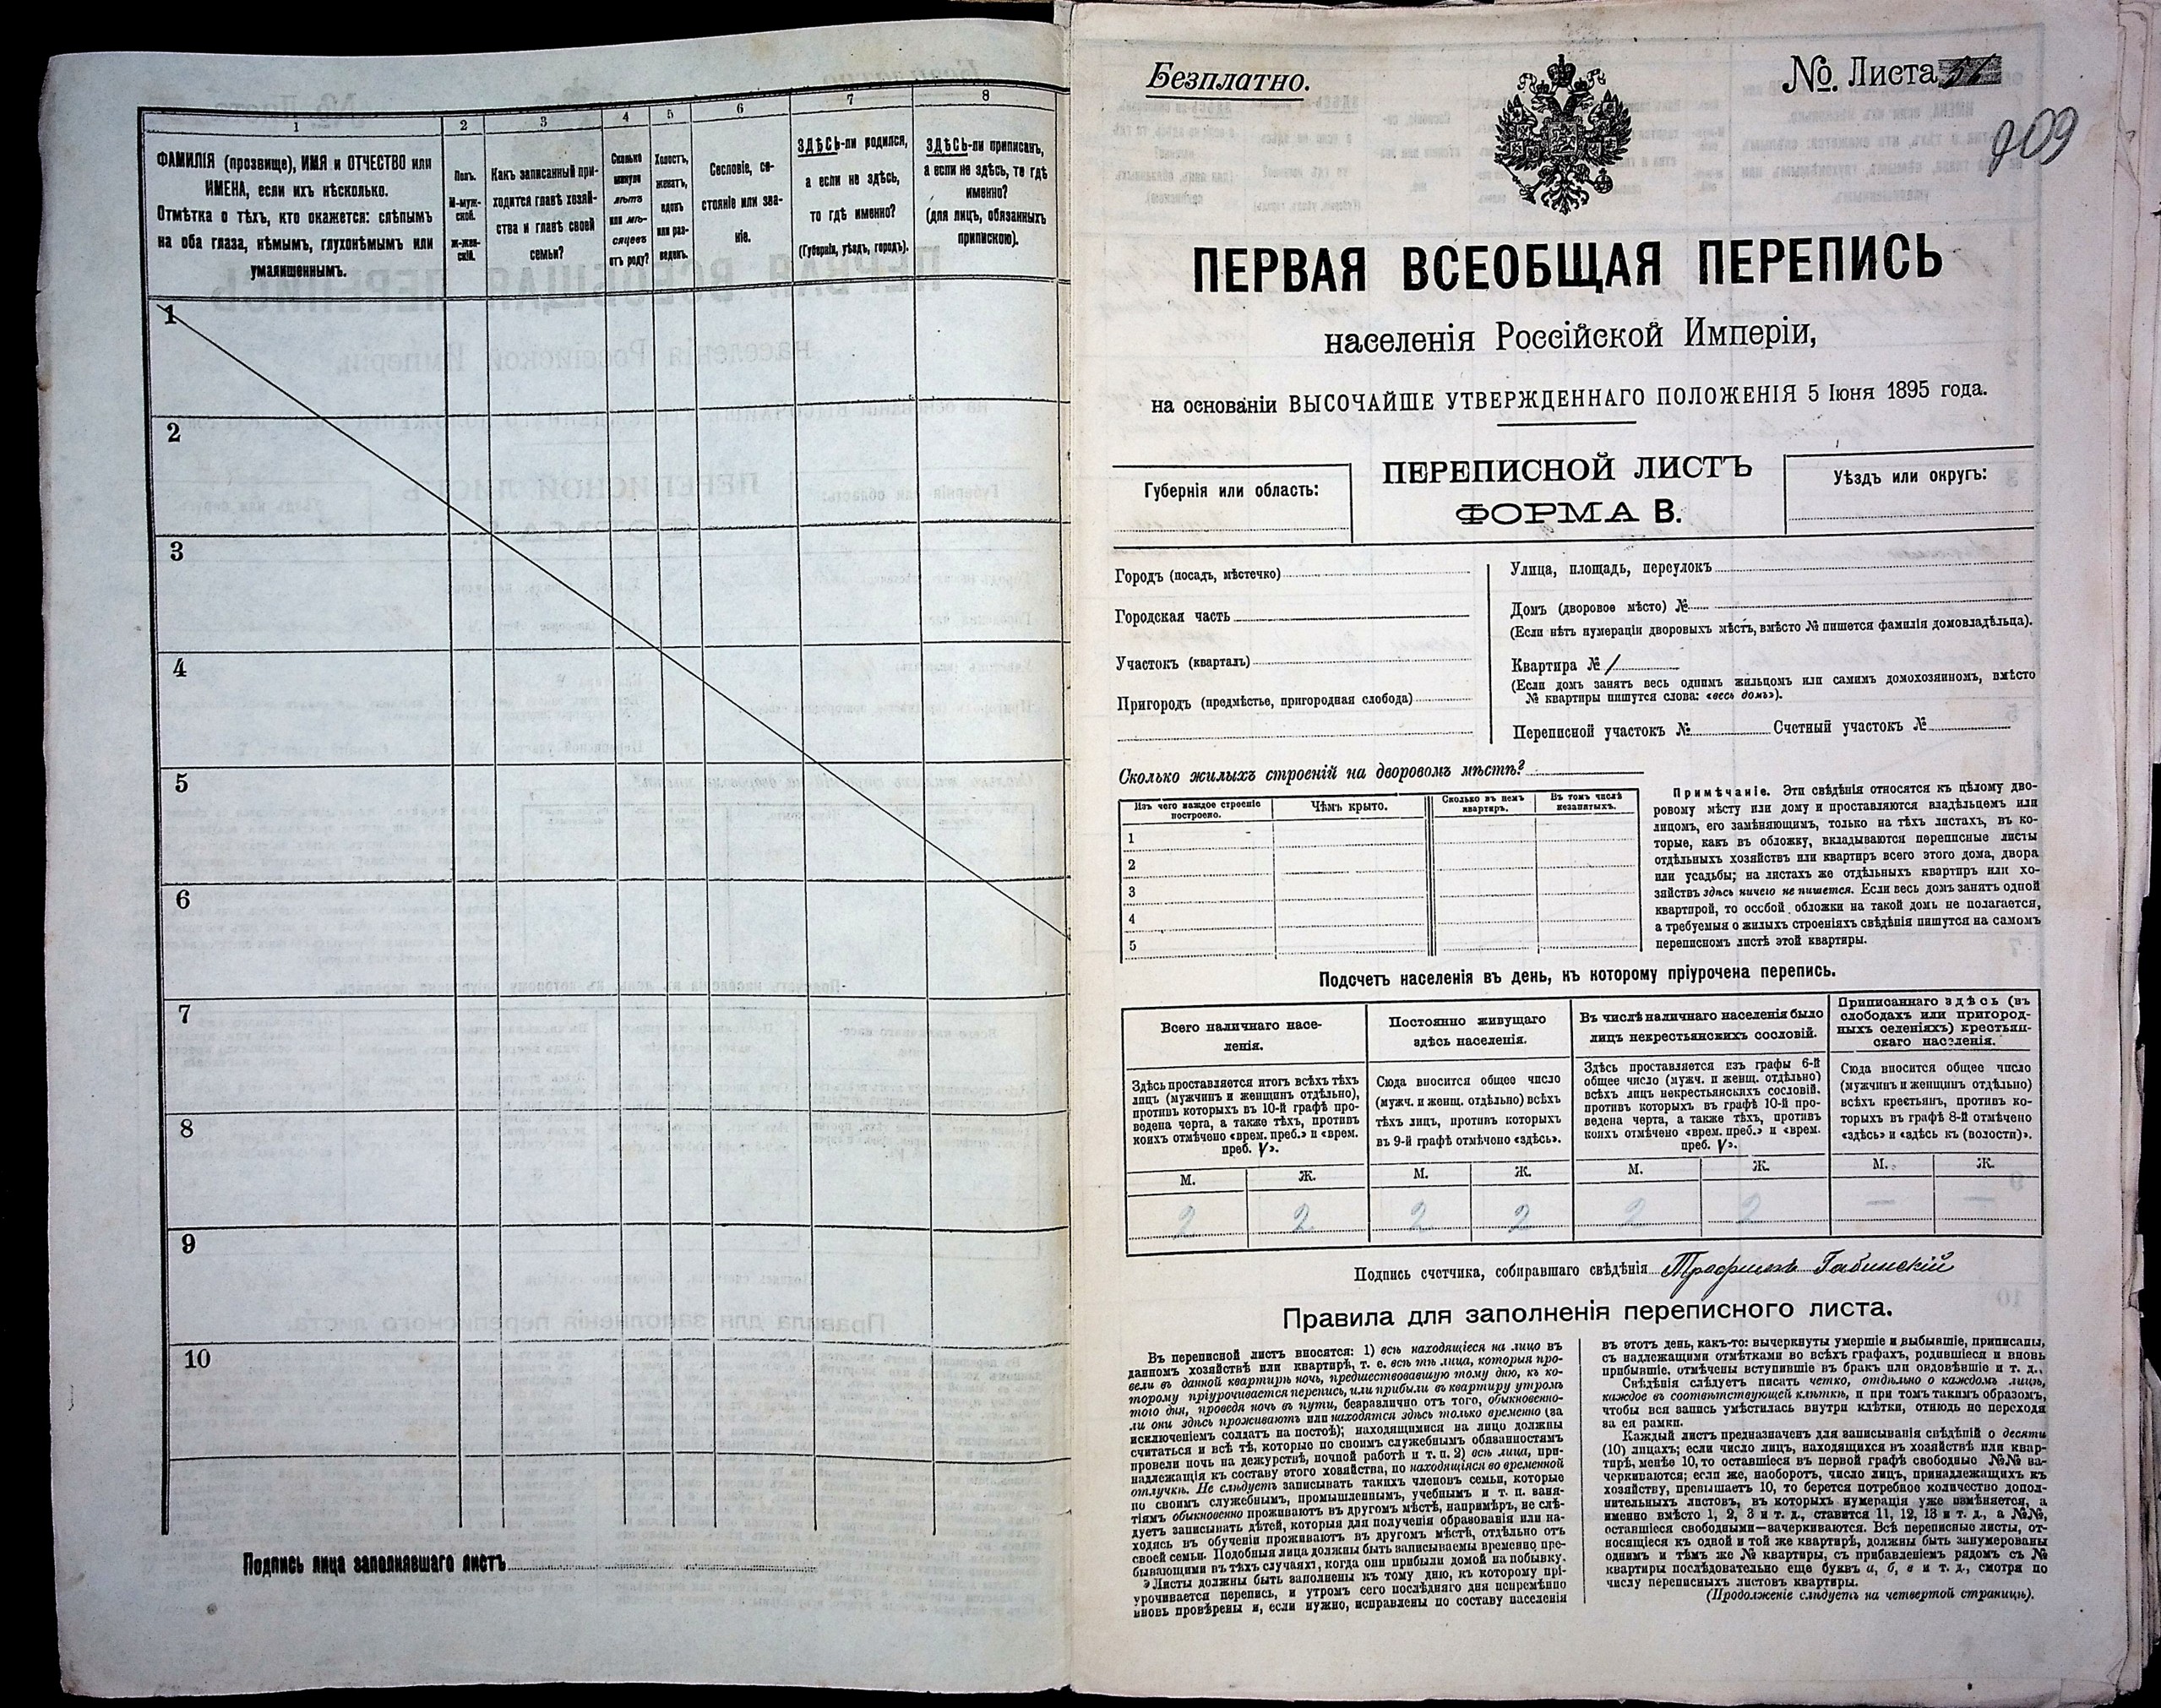 1
2
3
4
5
6
7
8
ФАМИЛІЯ (прозвище), ИМЯ и ОТЧЕСТВО или
ИМЕНА, если ихъ нѣсколько.
Отмѣтка о тѣхъ, кто окажется: слѣпымъ
на оба глаза, нѣмымъ, глухонѣмымъ или
умалишеннымъ.
Полъ.
М-муж-
ской.
ж-жен-
скій.
Какъ записанный при-
ходится главѣ хозяй-
ства и главѣ своей
семьи?
Сколько
минуло
лѣтъ
или мѣ-
сяцевъ
отъ роду?
Холостъ,
женатъ,
вдовъ
или раз-
веденъ.
Сословіе, со-
стояніе или зва-
ніе.
ЗДѢСЬ-ли родился,
а если не здѣсь,
то гдѣ именно?
(Губернія, уѣздъ, городъ).
ЗДѢСЬ-ли приписанъ,
а если не здѣсь, то гдѣ
именно?
(для лицъ, обязанныхъ
припискою).
1
2
3
4
5
6
7
8
9
10
Подпись лица заполнявшаго листъ
Безплатно.
№ Листа 56
209
ПЕРВАЯ ВСЕОБЩАЯ ПЕРЕПИСЬ
населенія Россійской Имперіи,
на основаніи ВЫСОЧАЙШЕ УТВЕРЖДЕННАГО ПОЛОЖЕНІЯ 5 Іюня 1895 года.
Губернія или область:
ПЕРЕПИСНОЙ ЛИСТЪ
ФОРМА В.
Уѣздъ или округъ:
Городъ (посадъ, мѣстечко)
Городская часть
Участокъ (кварталъ)
Пригородъ (предмѣстье, пригородная слобода)
Улица, площадь, переулокъ
Домъ (дворовое мѣсто) №
(Если нѣтъ нумераціи дворовыхъ мѣстъ, вмѣсто № пишется фамилія домовладѣльца).
Квартира № 1
(Если домъ занятъ весь однимъ жильцомъ или самимъ домохозяиномъ, вмѣсто
№ квартиры пишутся слова: «весь домъ»).
Переписной участокъ № Счетный участокъ №
Сколько жилыхъ строеній на дворовомъ мѣстѣ?
Изъ чего каждое строеніе
построено.
Чѣмъ крыто.
Сколько въ немъ
квартиръ.
Въ томъ числѣ
незанятыхъ.
1
2
3
4
5
Примѣчаніе. Эти свѣдѣнія относятся къ цѣлому дво-
ровому мѣсту или дому и проставляются владѣльцемъ или
лицомъ, его замѣняющимъ, только на тѣхъ листахъ, въ ко-
торые, какъ въ обложку, вкладываются переписные листы
отдѣльныхъ хозяйствъ или квартиръ всего этого дома, двора
или усадьбы; на листахъ же отдѣльныхъ квартиръ или хо-
зяйствъ здѣсь ничего не пишется. Если весь домъ занятъ одной
квартирой, то особой обложки на такой домъ не полагается,
а требуемыя о жилыхъ строеніяхъ свѣдѣнія пишутся на самомъ
переписномъ листѣ этой квартиры.
Подсчетъ населенія въ день, къ которому пріурочена перепись.
Всего наличнаго насе-
ленія.
Здѣсь проставляется итогъ всѣхъ тѣхъ
лицъ (мужчинъ и женщинъ отдѣльно),
противъ которыхъ въ 10-й графѣ про-
ведена черта, а также тѣхъ, противъ
коихъ отмѣчено «врем. преб.» и «врем.
преб. V».
Постоянно живущаго
здѣсь населенія.
Сюда вносится общее число
(мужч. и женщ. отдѣльно) всѣхъ
тѣхъ лицъ, противъ которыхъ
въ 9-й графѣ отмѣчено «здѣсь».
Въ числѣ наличнаго населенія было
лицъ некрестьянскихъ сословій.
Здѣсь проставляется изъ графы 6-й
общее число (мужч. и женщ. отдѣльно)
всѣхъ лицъ некрестьянскихъ сословій,
противъ которыхъ въ графѣ 10-й про-
ведена черта, а также тѣхъ, противъ
коихъ отмѣчено «врем. преб.» и «врем.
преб. V».
Приписаннаго здѣсь (въ
слободахъ или пригород-
ныхъ селеніяхъ) крестьян-
скаго населенія.
Сюда вносится общее число
(мужчинъ и женщинъ отдѣльно)
всѣхъ крестьянъ, противъ ко-
торыхъ въ графѣ 8-й отмѣчено
«здѣсь» и «здѣсь къ (волости)».
М. Ж. М. Ж. М. Ж. М. Ж.
2 2 2 2 2 2 — —
Подпись счетчика, собиравшаго свѣдѣнія Трофимъ Габинскій
Правила для заполненія переписного листа.
Въ переписной листъ вносятся: 1) всѣ находящіеся на лицо въ
данномъ хозяйствѣ или квартирѣ, т. е. всѣ тѣ лица, которыя про-
вели въ данной квартирѣ ночь, предшествовавшую тому дню, къ ко-
торому пріурочивается перепись, или прибыли въ квартиру утромъ
того дня, проведя ночь въ пути, безразлично отъ того, обыкновенно-
ли они здѣсь проживаютъ или находятся здѣсь только временно (за
исключеніемъ солдатъ на постоѣ); находящимися на лицо должны
считаться и всѣ тѣ, которые по своимъ служебнымъ обязанностямъ
провели ночь на дежурствѣ, ночной работѣ и т. п. 2) всѣ лица, при-
надлежащія къ составу этого хозяйства, но находящіяся во временной
отлучкѣ. Не слѣдуетъ записывать такихъ членовъ семьи, которые
по своимъ служебнымъ, промышленнымъ, учебнымъ и т. п. заня-
тіямъ обыкновенно проживаютъ въ другомъ мѣстѣ, напримѣръ, не слѣ-
дуетъ записывать дѣтей, которыя для полученія образованія или на-
ходясь въ обученіи проживаютъ въ другомъ мѣстѣ, отдѣльно отъ
своей семьи. Подобныя лица должны быть записываемы временно пре-
бывающими въ тѣхъ случаяхъ, когда они прибыли домой на побывку.
Листы должны быть заполнены къ тому дню, къ которому прі-
урочивается перепись, и утромъ сего послѣдняго дня непремѣнно
вновь провѣрены и, если нужно, исправлены по составу населенія
въ этотъ день, какъ-то: вычеркнуты умершіе и выбывшіе, приписаны,
съ надлежащими отмѣтками во всѣхъ графахъ, родившіеся и вновь
прибывшіе, отмѣчены вступившіе въ бракъ или овдовѣвшіе и т. д.,
Свѣдѣнія слѣдуетъ писать четко, отдѣльно о каждомъ лицѣ,
каждое въ соотвѣтствующей клѣткѣ, и при томъ такимъ образомъ,
чтобы вся запись умѣстилась внутри клѣтки, отнюдь не переходя
за ея рамки.
Каждый листъ предназначенъ для записыванія свѣдѣній о десяти
(10) лицахъ; если число лицъ, находящихся въ хозяйствѣ или квар-
тирѣ, менѣе 10, то оставшіеся въ первой графѣ свободные №№ за-
черкиваются; если же, наоборотъ, число лицъ, принадлежащихъ къ
хозяйству, превышаетъ 10, то берется потребное количество допол-
нительныхъ листовъ, въ которыхъ нумерація уже измѣняется, а
именно вмѣсто 1, 2, 3 и т. д., ставится 11, 12, 13 и т. д., а №№,
оставшіеся свободными—зачеркиваются. Всѣ переписные листы, от-
носящіеся къ одной и той же квартирѣ, должны быть занумерованы
однимъ и тѣмъ же № квартиры, съ прибавленіемъ рядомъ съ №
квартиры послѣдовательно еще буквъ а, б, в и т. д., смотря по
числу переписныхъ листовъ квартиры.
(Продолженіе слѣдуетъ на четвертой страницѣ).